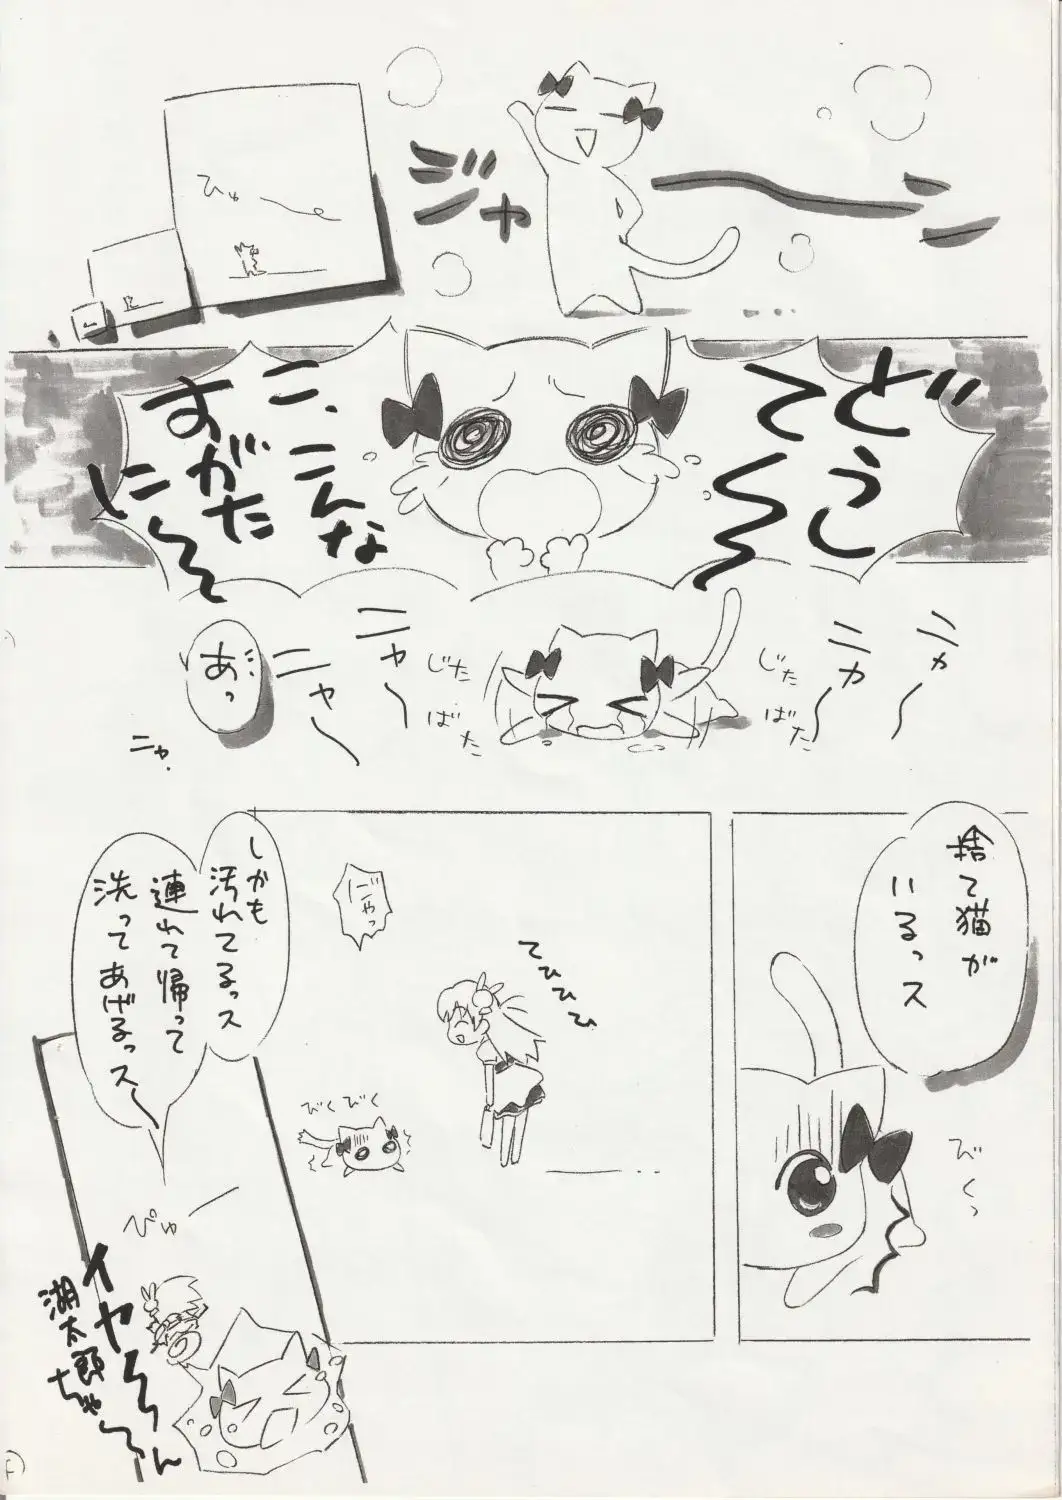 ジャーーン
ひゅーー
どうし
て〜〜
こ、こんな
すがた
に〜〜
ニャー
ニャー
じた
ばた
じた
ばた
ニャー
ニャー
あっ
ニャ.
捨て猫が
いるっス
びくっ
てひひひ
にゃっ
びくびく
しかも
汚れてるっス
連れて帰って
洗ってあげるっスー
ぴゅー
イヤ〜〜ん
湖太郎
ちゃ〜〜